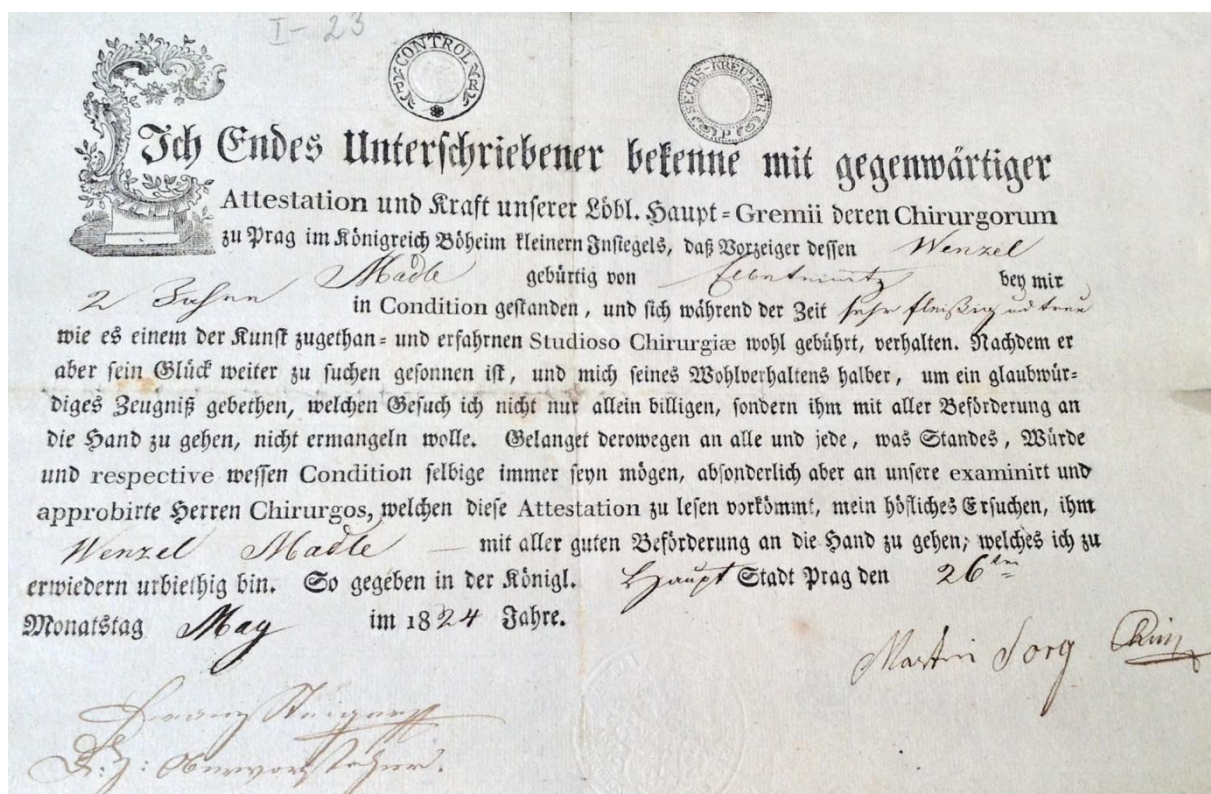 I-23
CONTROL
SECHS-KREUTZER
P
Ich Endes Unterschriebener bekenne mit gegenwärtiger
Attestation und Kraft unserer Löbl. Haupt-Gremii deren Chirurgorum
zu Prag im Königreich Böheim kleinern Insiegels, daß Vorzeiger dessen Wenzel
Madle gebürtig von Elbeteinitz bey mir
2 Jahre in Condition gestanden, und sich während der Zeit sehr fleißig und treu
wie es einem der Kunst zugethan- und erfahrnen Studioso Chirurgiæ wohl gebührt, verhalten. Nachdem er
aber sein Glück weiter zu suchen gesonnen ist, und mich seines Wohlverhaltens halber, um ein glaubwür-
diges Zeugniß gebethen, welchen Gesuch ich nicht nur allein billigen, sondern ihm mit aller Beförderung an
die Hand zu gehen, nicht ermangeln wolle. Gelanget derowegen an alle und jede, was Standes, Würde
und respective wessen Condition selbige immer seyn mögen, absonderlich aber an unsere examinirt und
approbirte Herren Chirurgos, welchen diese Attestation zu lesen vorkömmt, mein höfliches Ersuchen, ihm
Wenzel Madle — mit aller guten Beförderung an die Hand zu gehen, welches ich zu
erwiedern urbiethig bin. So gegeben in der Königl. Haupt Stadt Prag den 26ten
Monatstag May im 1824 Jahre.
Martin Sorg Chir
Franz
Obervorsteher.